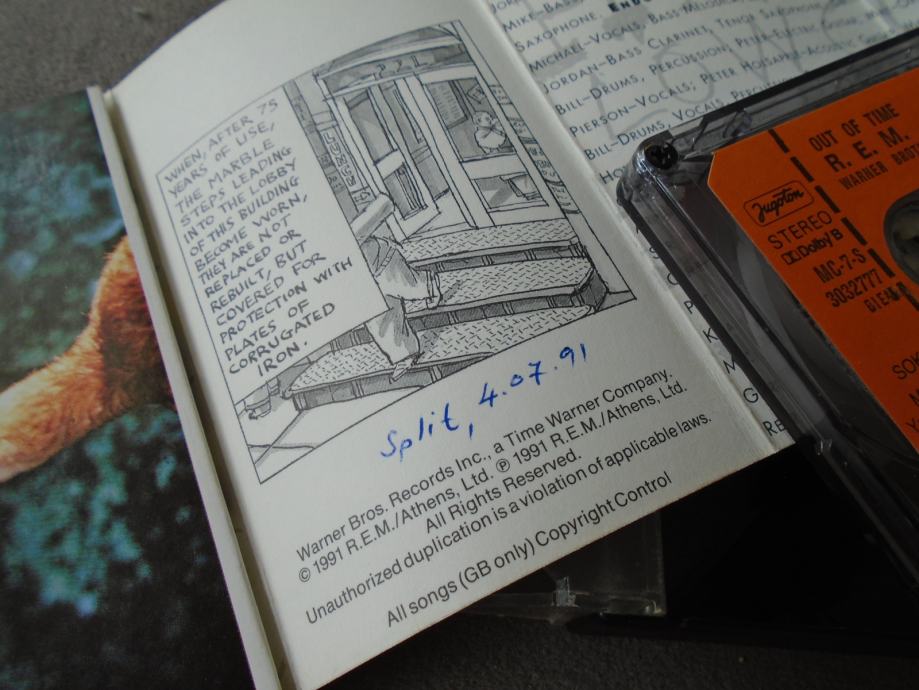 WHEN, AFTER 75
YEARS OF USE,
THE MARBLE
STEPS LEADING
INTO THE LOBBY
OF THIS BUILDING
BECOME WORN,
THEY ARE NOT
REPLACED OR
REBUILT, BUT
COVERED FOR
PROTECTION WITH
PLATES OF
CORRUGATED
IRON.
Split, 4.07.91
Warner Bros. Records Inc., a Time Warner Company.
© 1991 R.E.M./Athens, Ltd. ℗ 1991 R.E.M./Athens, Ltd.
All Rights Reserved.
Unauthorized duplication is a violation of applicable laws.
All songs (GB only) Copyright Control
MIKE–BASS
SAXOPHONE.
MICHAEL–VOCALS, BASS MELODICA
JORDAN–BASS CLARINET, TENOR SAXOPHONE
BILL–DRUMS, PERCUSSION, PETER–ELECTRIC GUITAR
PIERSON–VOCALS; PETER HOLSAPPLE–ACOUSTIC GUITAR
BILL–DRUMS, VOCALS
OUT OF TIME
R. E. M.
WARNER
Jugoton
STEREO
Dolby B
MC-7-S
3032777